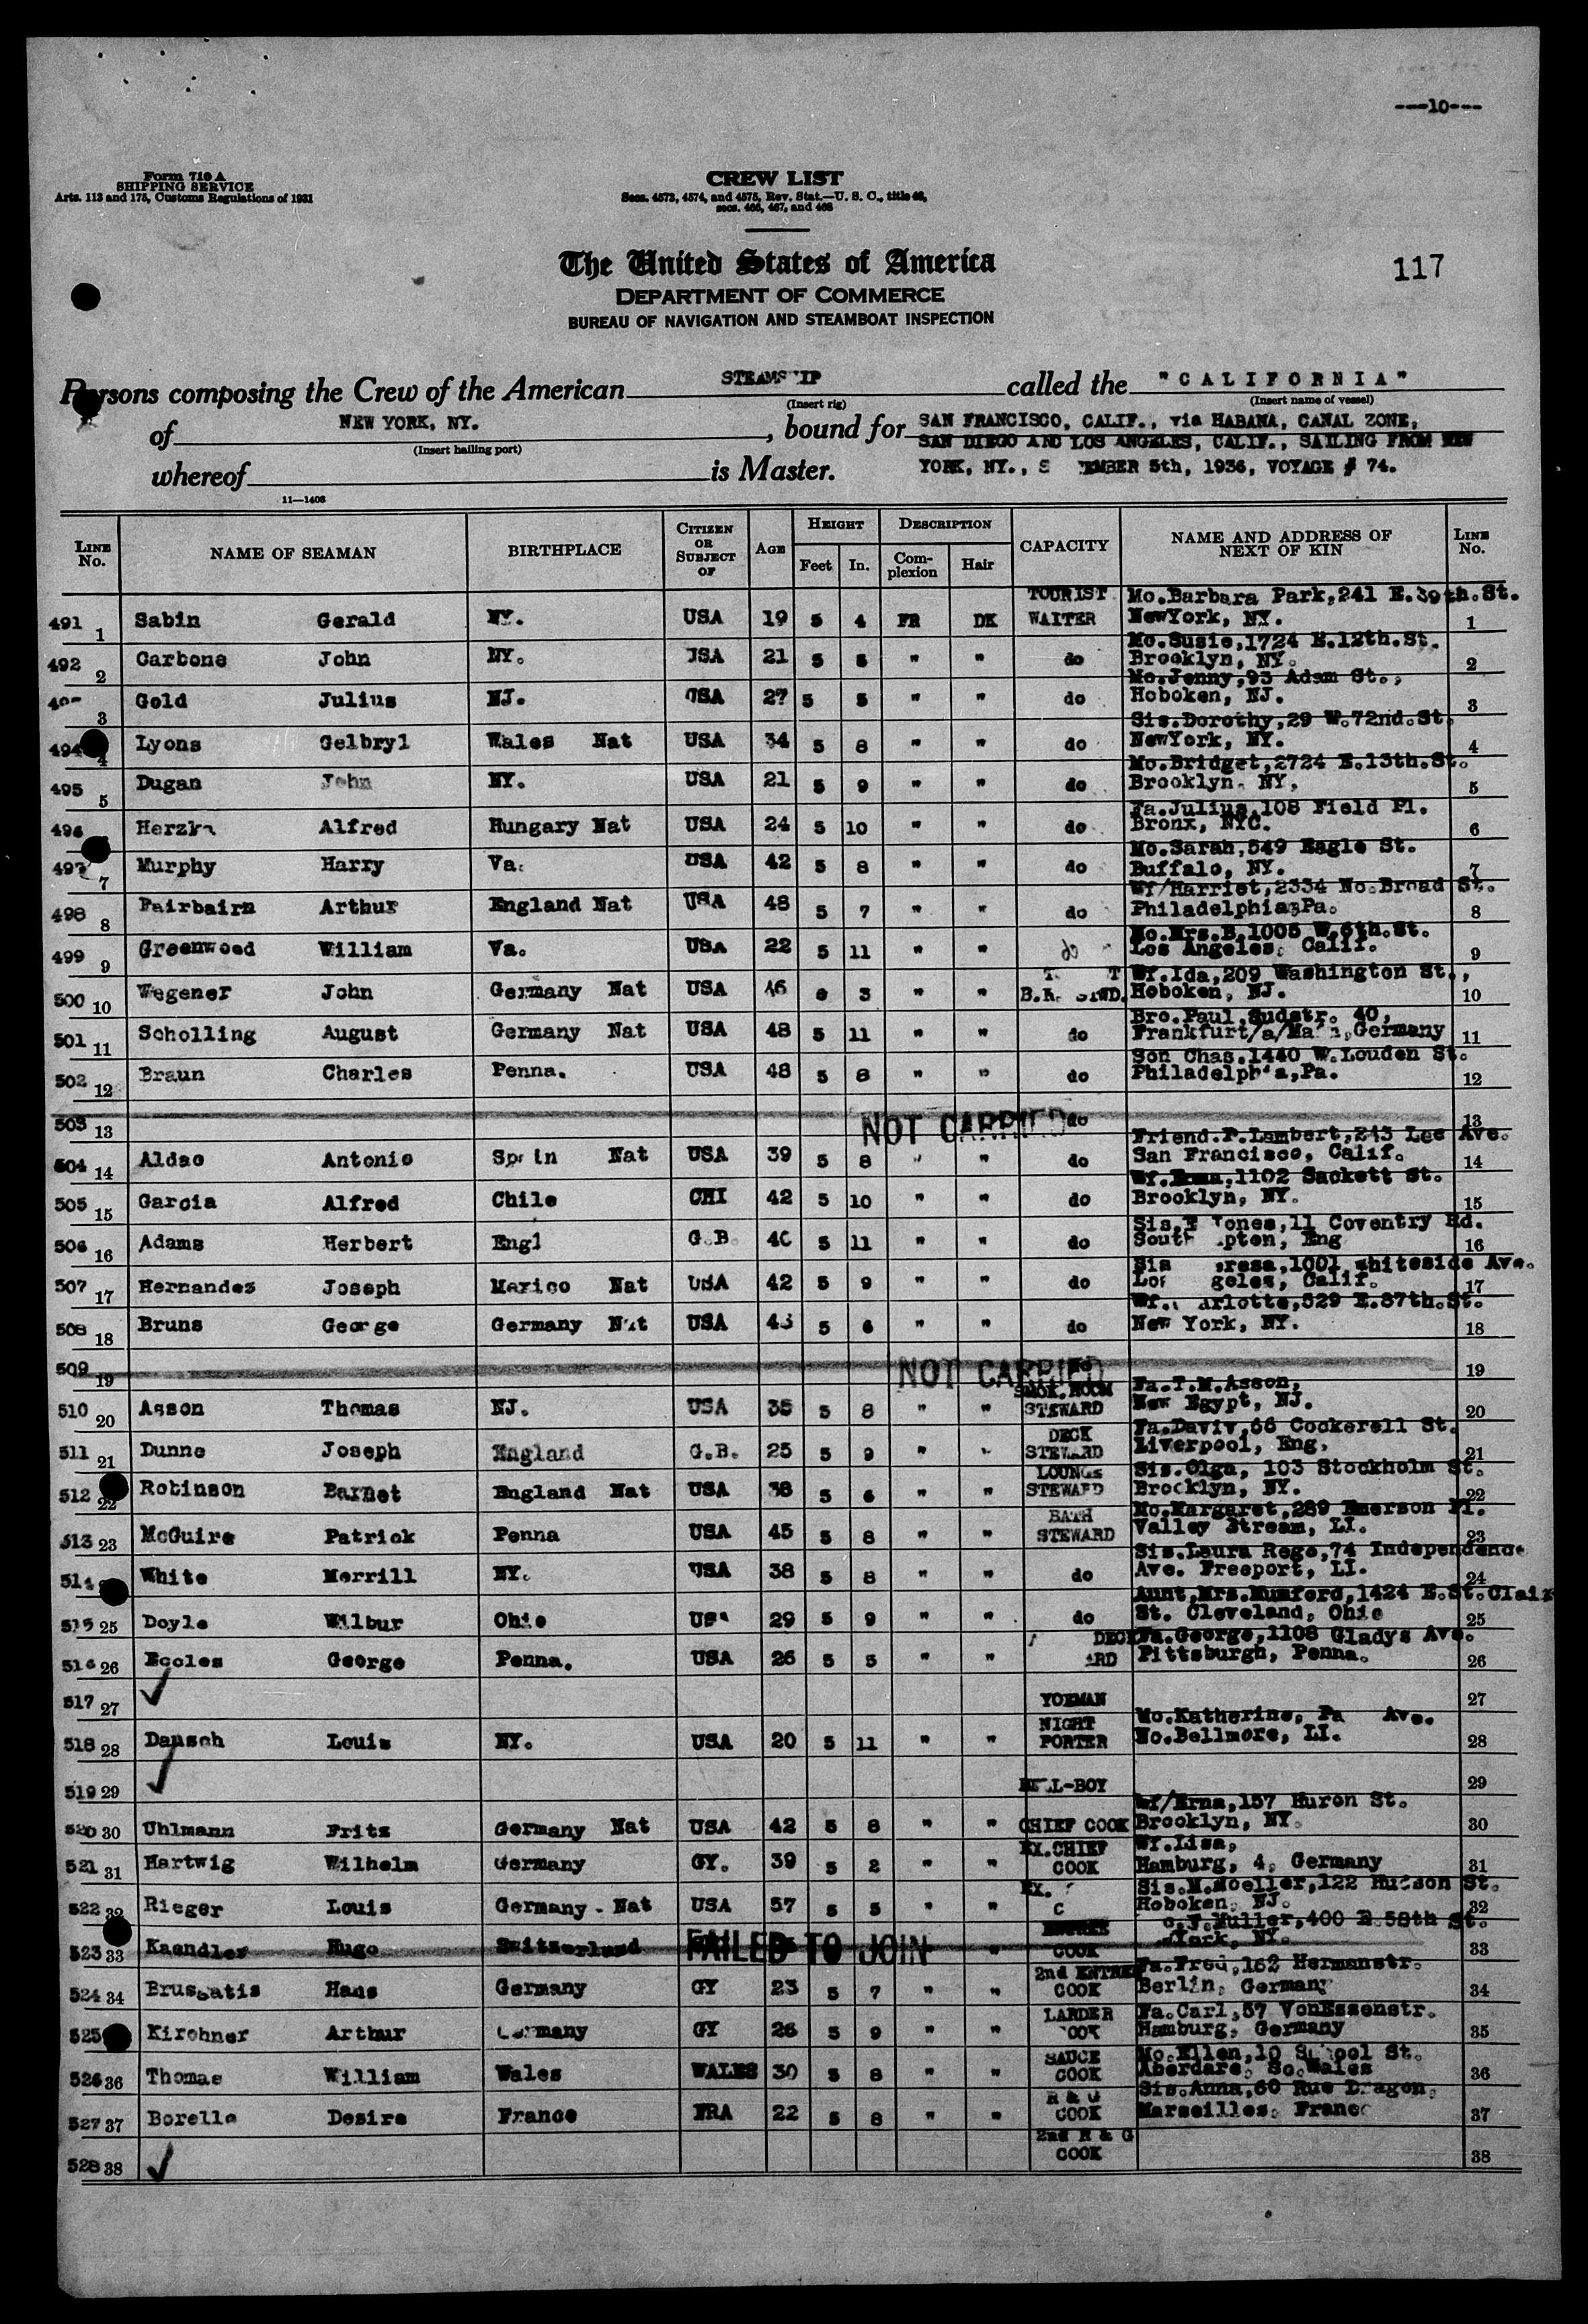 ---10---
Form 710 A
SHIPPING SERVICE
Arts. 113 and 175, Customs Regulations of 1931
CREW LIST
Secs. 4573, 4574, and 4575, Rev. Stat.—U. S. C., title 46,
secs. 466, 467, and 468
The United States of America
DEPARTMENT OF COMMERCE
BUREAU OF NAVIGATION AND STEAMBOAT INSPECTION
117
Persons composing the Crew of the American STEAMSHIP called the "CALIFORNIA"
(Insert rig) (Insert name of vessel)
of NEW YORK, NY. , bound for SAN FRANCISCO, CALIF., via HABANA, CANAL ZONE,
(Insert hailing port) SAN DIEGO AND LOS ANGELES, CALIF., SAILING FROM NEW
whereof is Master. YORK, NY., S EMBER 5th, 1936, VOYAGE # 74.
11—1408
LINE No. NAME OF SEAMAN BIRTHPLACE CITIZEN OR SUBJECT OF AGE HEIGHT Feet In. DESCRIPTION Complexion Hair CAPACITY NAME AND ADDRESS OF NEXT OF KIN LINE No.
TOURIST Mo.Barbara Park,241 E.39th.St.
491 1 Sabin Gerald NY. USA 19 5 4 FR DK WAITER NewYork, NY. 1
Mo.Susie,1724 E.12th.St.
492 2 Carbone John NY. USA 21 5 5 " " do Brooklyn, NY. 2
Mo.Jenny,93 Adam St.,
3 Gold Julius NJ. USA 27 5 5 " " do Hoboken, NJ. 3
Sis.Dorothy,29 W.72nd.St.
494 4 Lyons Gelbryl Wales Nat USA 34 5 8 " " do NewYork, NY. 4
Mo.Bridget,2724 E.13th.St.
495 5 Dugan John NY. USA 21 5 9 " " do Brooklyn, NY, 5
Fa.Julius,108 Field Pl.
496 Herzka Alfred Hungary Nat USA 24 5 10 " " do Bronx, NYC. 6
Mo.Sarah,549 Eagle St.
497 7 Murphy Harry Va. USA 42 5 8 " " do Buffalo, NY. 7
Wf/Harriet,2334 No.Broad St.
498 8 Fairbairn Arthur England Nat USA 48 5 7 " " do Philadelphia,Pa. 8
Mo.Mrs.B.1005 W.6th.St.
499 9 Greenwood William Va. USA 22 5 11 " " do Los Angeles, Calif. 9
T. T Wf.Ida,209 Washington St.,
500 10 Wegener John Germany Nat USA 46 6 3 " " B.R. STWD. Hoboken, NJ. 10
Bro.Paul,Sudstr. 40,
501 11 Scholling August Germany Nat USA 48 5 11 " " do Frankfurt/a/Main,Germany 11
Son Chas.1440 W.Louden St.
502 12 Braun Charles Penna. USA 48 5 8 " " do Philadelphia,Pa. 12
503 13 NOT CARRIED do 13
Friend.P.Lambert,243 Lee Ave.
504 14 Aldao Antonio Spain Nat USA 39 5 8 " " do San Francisco, Calif. 14
Wf. 1102 Sackett St.
505 15 Garcia Alfred Chile CHI 42 5 10 " " do Brooklyn, NY. 15
Sis. Jones,11 Coventry Rd.
506 16 Adams Herbert Engl G.B. 40 5 11 " " do South pton, Eng 16
Sis resa,1001 Whiteside Ave.
507 17 Hernandez Joseph Mexico Nat USA 42 5 9 " " do Los geles, Calif. 17
Wf. arlotte,529 E.87th.St.
508 18 Bruns George Germany Nat USA 43 5 6 " " do New York, NY. 18
509 19 NOT CARRIED do 19
SMOK.ROOM Fa.T.M.Asson,
510 20 Asson Thomas NJ. USA 35 5 8 " " STEWARD New Egypt, NJ. 20
DECK Fa.Daviv,66 Cockerell St.
511 21 Dunne Joseph England G.B. 25 5 9 " " STEWARD Liverpool, Eng. 21
LOUNGE Sis.Olga, 103 Stockholm St.
512 22 Robinson Barnet England Nat USA 38 5 6 " " STEWARD Brooklyn, NY. 22
BATH Mo.Margaret,289 Emerson Pl.
513 23 McGuire Patrick Penna USA 45 5 8 " " STEWARD Valley Stream, LI. 23
Sis.Laura Rege,74 Independence
514 White Merrill NY. USA 38 5 8 " " do Ave. Freeport, LI. 24
Aunt,Mrs.Mumford,1424 E.St.Clair
515 25 Doyle Wilbur Ohio USA 29 5 9 " " do St. Cleveland, Ohio 25
DECK Fa.George,1108 Gladys Ave.
516 26 Eccles George Penna. USA 26 5 5 " " ARD Pittsburgh, Penna. 26
517 27 YOEMAN 27
NIGHT Mo.Katherine, Pa Ave.
518 28 Dausch Louis NY. USA 20 5 11 " " PORTER No.Bellmore, LI. 28
519 29 BELL-BOY 29
Wf/Erna,157 Huron St.
520 30 Uhlmann Fritz Germany Nat USA 42 5 8 " " CHIEF COOK Brooklyn, NY. 30
EX.CHIEF Wf.Lisa,
521 31 Hartwig Wilhelm Germany GY. 39 5 2 " " COOK Hamburg, 4, Germany 31
EX. Sis.M.Moeller,122 Hudson St.
522 32 Rieger Louis Germany - Nat USA 57 5 5 " " C Hoboken, NJ. 32
ENTREE J.Muller,400 E.58th St.
523 33 Kaendler Hugo Switzerland FAILED TO JOIN " COOK York, NY. 33
2nd ENTREE Fa.Fred,162 Hermanstr.
524 34 Brussatis Hans Germany GY 23 5 7 " " COOK Berlin, Germany 34
LARDER Fa.Carl,57 VonEssenstr.
525 Kirchner Arthur Germany GY 26 5 9 " " COOK Hamburg, Germany 35
SAUCE Mo.Ellen,10 School St.
526 36 Thomas William Wales WALES 30 5 8 " " COOK Aberdare, So.Wales 36
R & G Sis.Anna,60 Rue Dragon,
527 37 Borello Desire France FRA 22 5 8 " " COOK Marseilles, France 37
2nd R & G
528 38 COOK 38